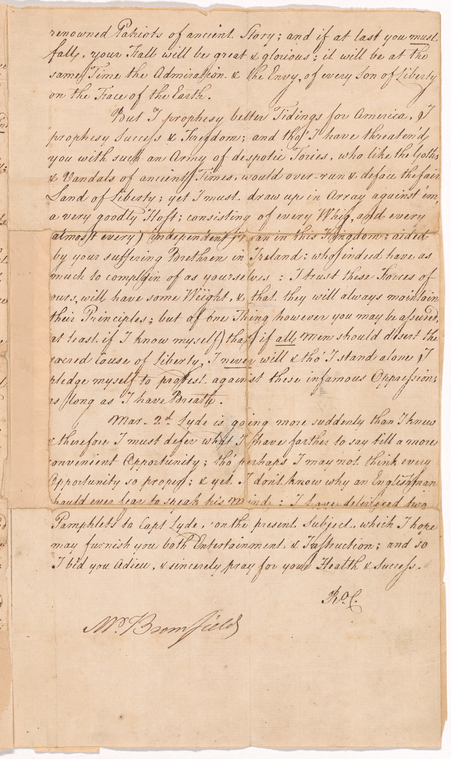 renowned Patriots of ancient Story; and if at last you must
fall, your Fall will be great & glorious; it will be at the
same Time the Admiration & the Envy of every Son of Liberty
on the Face of the Earth.
But I prophesy better Tidings for America, I
prophesy Success & Freedom; and tho' I have threatend
you with such an Army of despotic Tories, who like the Goths
& Vandals of ancient Times, would over-run & deface the fair
Land of Liberty; yet I must draw up in Array against 'em
a very goodly Host; consisting of every Whig, and every
almost every) independent man in this Kingdom; aided
by your suffering Brethren in Ireland; who indeed have as
much to complain of as yourselves: I trust these Forces of
ours, will have some Weight, & that they will always maintain
their Principles; but of one Thing however you may be assured,
at least, if I know myself) that if all Men should desert the
sacred Cause of Liberty, I never will & tho' I stand alone I
pledge myself to protest against these infamous Oppressions
as long as I have Breath.
Mar. 2d. Lyde is going more suddenly than I knew
& therefore I must defer what I have farther to say till a more
convenient Opportunity; tho' perhaps I may not think every
Opportunity so proper; & yet I don't know why an Englishman
should ever fear to speak his Mind: I have delivered two
Pamphlets to Capt Lyde, on the present Subject, which I hope
may furnish you both Entertainment & Instruction; and so
I bid you Adieu, & sincerely pray for your Health & Success.
Ro. C.
Mr. Bromfield